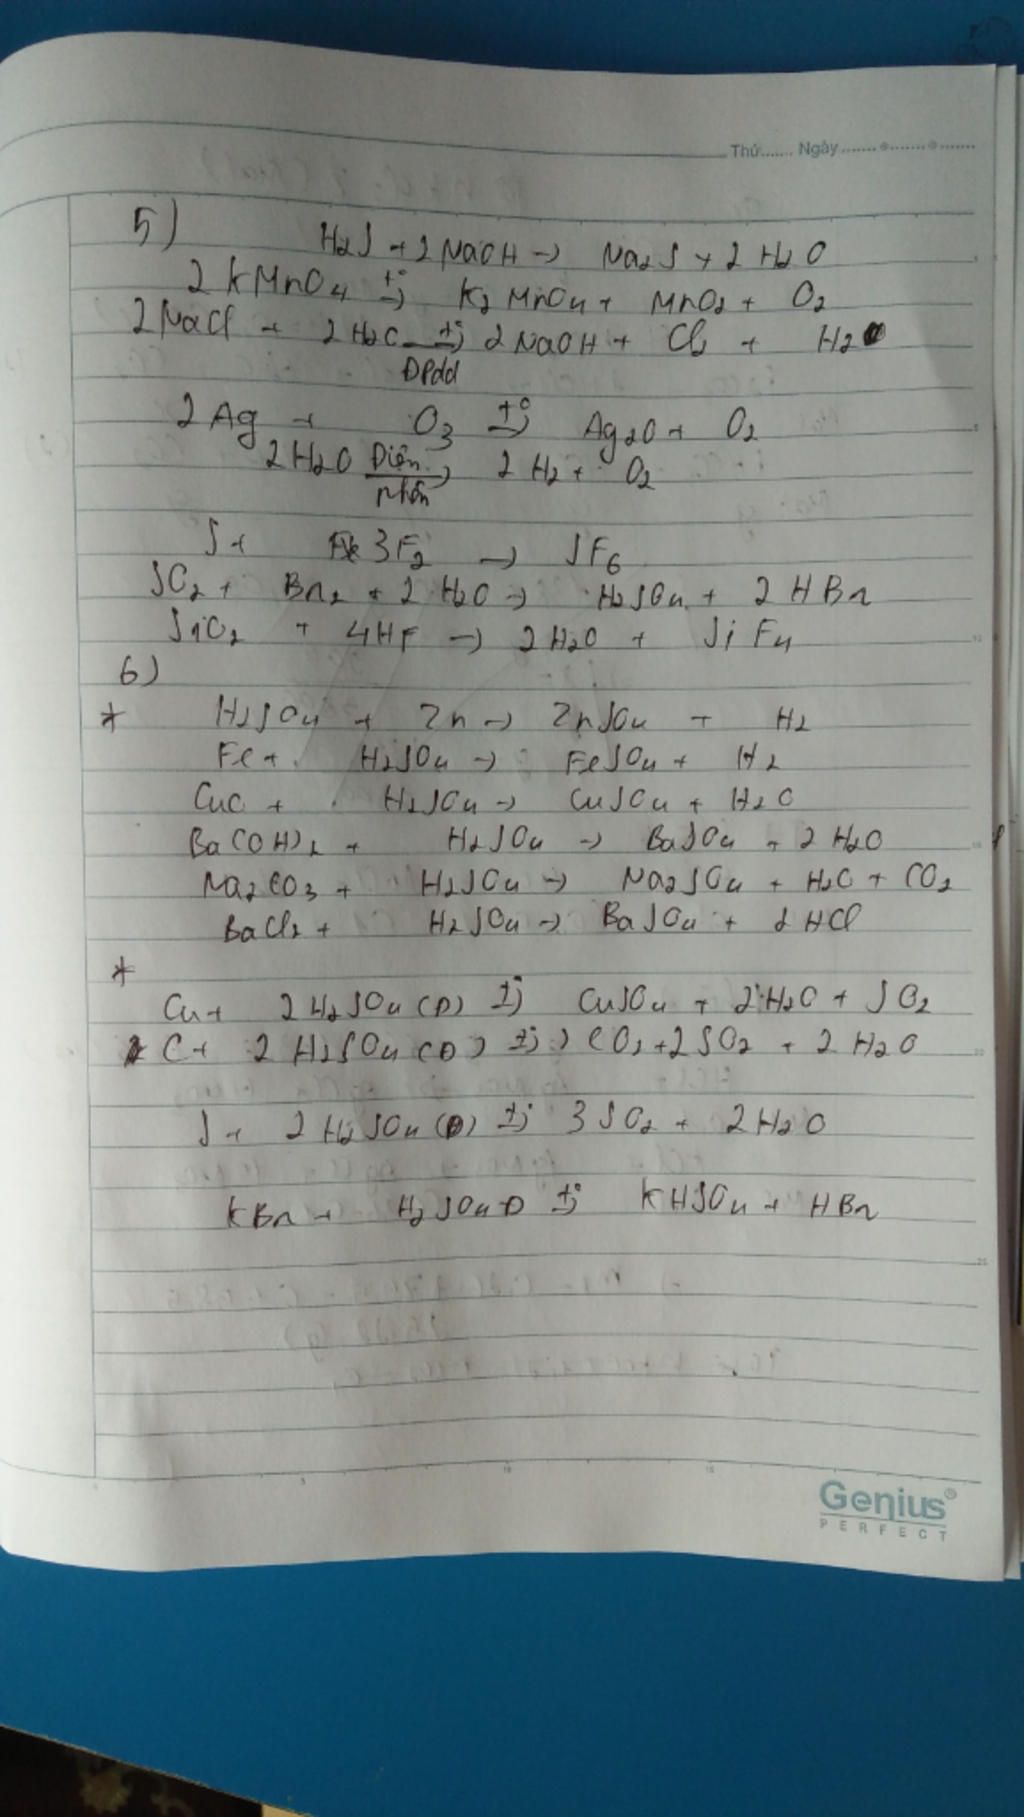 Thứ....... Ngày.......
5)
H2S + 2NaOH → Na2S + 2H2O
2KMnO4 t°→ K2MnO4 + MnO2 + O2
2NaCl + 2H2O t°→ 2NaOH + Cl2 + H2
ĐPdd
2Ag + O3 t°→ Ag2O + O2
2H2O Điện phân→ 2H2 + O2
S + 3F2 → SF6
SO2 + Br2 + 2H2O → H2SO4 + 2HBr
SiO2 + 4HF → 2H2O + SiF4
6)
* H2SO4 + Zn → ZnSO4 + H2
Fe + H2SO4 → FeSO4 + H2
CuO + H2SO4 → CuSO4 + H2O
Ba(OH)2 + H2SO4 → BaSO4 + 2H2O
Na2CO3 + H2SO4 → Na2SO4 + H2O + CO2
BaCl2 + H2SO4 → BaSO4 + 2HCl
*
Cu + 2H2SO4 (Đ) t°→ CuSO4 + 2H2O + SO2
C + 2H2SO4 (Đ) t°→ CO2 + 2SO2 + 2H2O
S + 2H2SO4 (Đ) t°→ 3SO2 + 2H2O
KBr + H2SO4 Đ t°→ KHSO4 + HBr
Genius
PERFECT